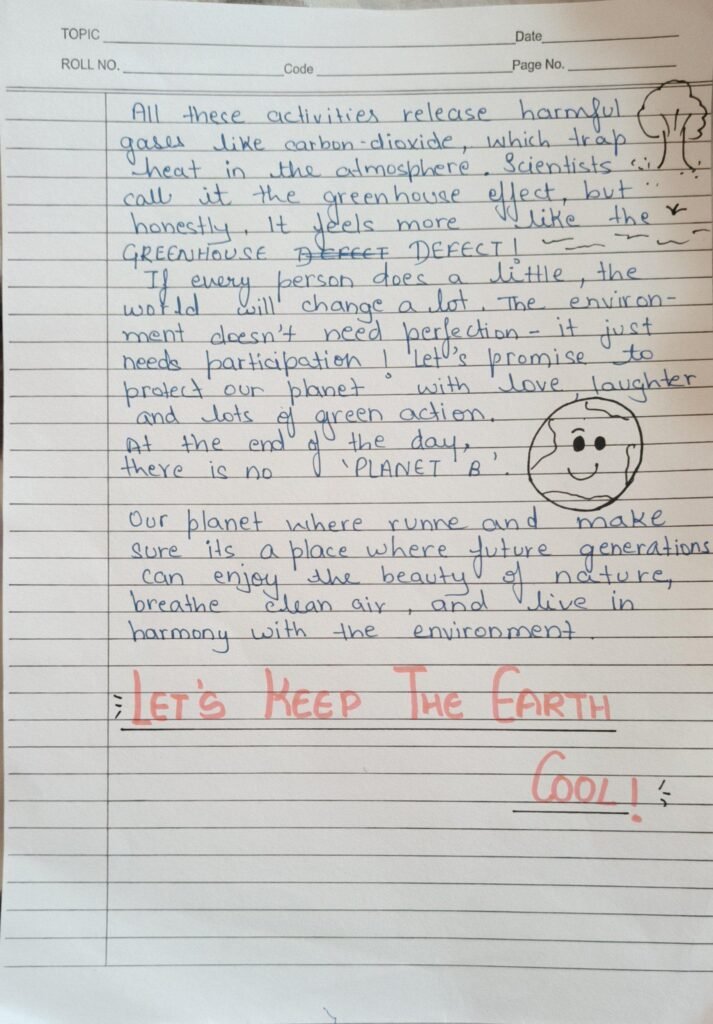 TOPIC Date
ROLL NO. Code Page No.
All these activities release harmful
gases like carbon-dioxide, which trap
heat in the atmosphere. Scientists
call it the greenhouse effect, but
honestly, It feels more like the
GREENHOUSE DEFECT DEFECT!
If every person does a little, the
world will change a lot. The environ-
ment doesn't need perfection - it just
needs participation! Let's promise to
protect our planet with love, laughter
and lots of green action.
At the end of the day,
there is no 'PLANET B'.
Our planet where runne and make
sure its a place where future generations
can enjoy the beauty of nature,
breathe clean air, and live in
harmony with the environment.
LET'S KEEP THE EARTH
COOL!